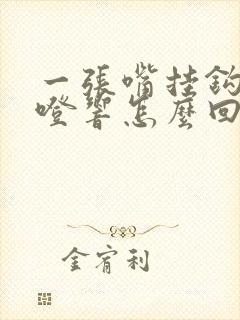 一張嘴挂鈎
噔響怎麽回
金宥利